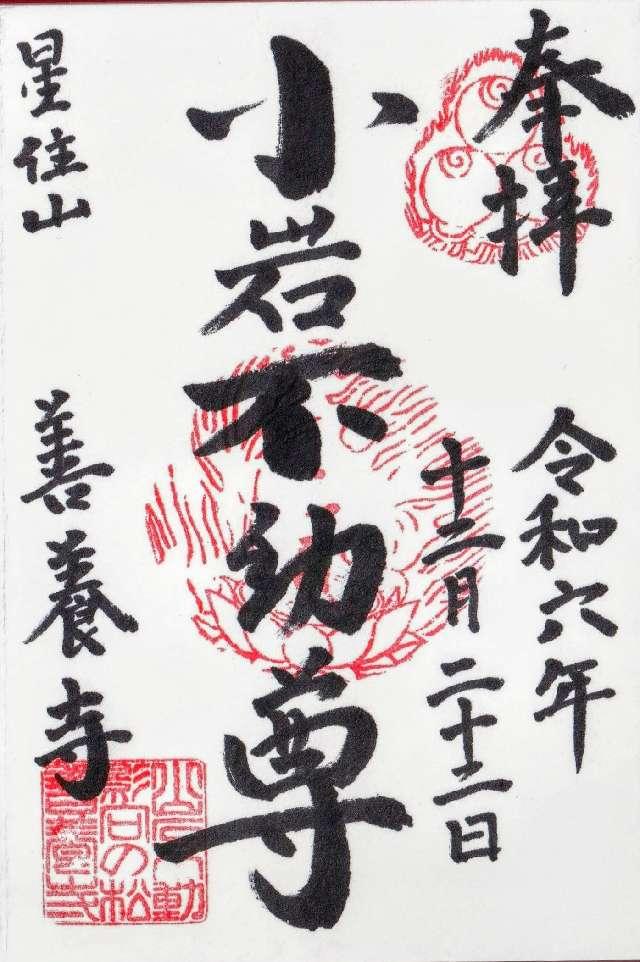 奉拝
令和六年
十二月二十二日
小岩不動尊
星住山
善養寺
小岩不動
影向の松
善養寺